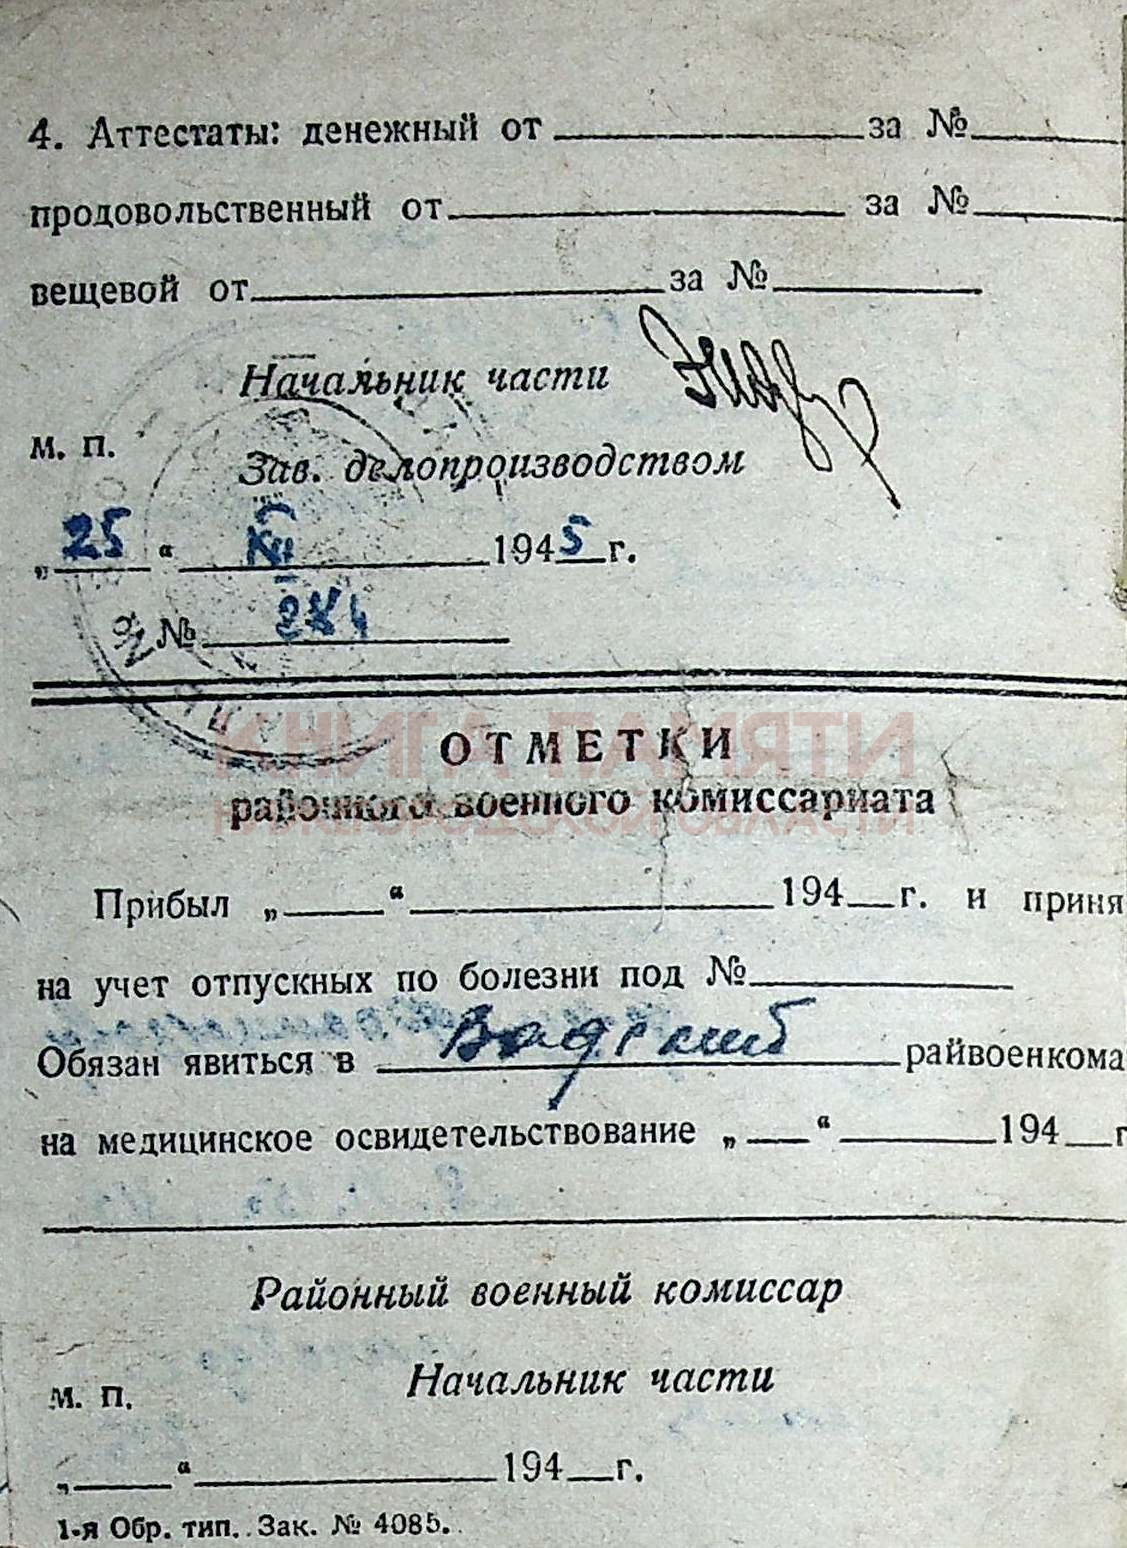 4. Аттестаты: денежный от ______ за № ______
продовольственный от ______ за № ______
вещевой от ______ за № ______
Начальник части
м. п.
Зав. делопроизводством
„25“ XII 1945 г.
№
ОТМЕТКИ
районного военного комиссариата
КНИГА ПАМЯТИ
НИЖЕГОРОДСКОЙ ОБЛАСТИ
Прибыл „___“ ______ 194__ г. и приня
на учет отпускных по болезни под № ______
Обязан явиться в Вадский райвоенкома
на медицинское освидетельствование „___“ ______ 194__ г
Районный военный комиссар
Начальник части
м. п.
„___“ ______ 194__ г.
1-я Обр. тип. Зак. № 4085.